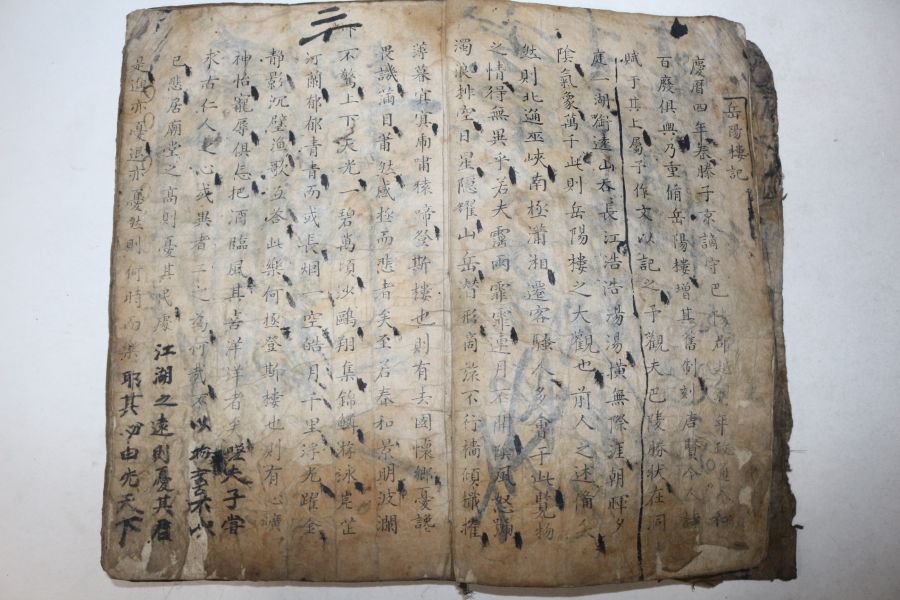 岳陽樓記
慶曆四年春滕子京謫守巴陵郡越明年政通人和
百廢俱興乃重脩岳陽樓增其舊制刻唐賢今人詩
賦于其上屬予作文以記之予觀夫巴陵勝狀在洞
庭一湖銜遠山吞長江浩浩湯湯橫無際涯朝暉夕
陰氣象萬千此則岳陽樓之大觀也前人之述備矣
然則北通巫峽南極瀟湘遷客騷人多會于此覽物
之情得無異乎若夫霪雨霏霏連月不開陰風怒號
濁浪排空日星隱耀山岳形商旅不行檣傾檝摧
薄暮冥冥嘯猿啼登斯樓也則有去國懷鄉憂讒
畏譏滿目蕭然感極而悲者矣至若春和景明波瀾
不驚上下天光一碧萬頃沙鷗翔集錦鱗游泳岸芷
汀蘭郁郁青青而或長烟一空皓月千里浮光躍金
靜影沉壁漁歌互答此樂何極登斯樓也則有心曠
神怡寵辱俱忘把酒臨風其喜洋洋者矣嗟夫予嘗
求古仁人之心或異者二之為何哉不以物喜不以
己悲居廟堂之高則憂其民處江湖之遠則憂其君
是進亦憂退亦憂然則何時而樂耶其必由先天下